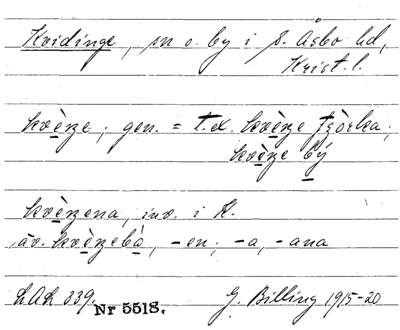 Kvidinge, sn o. by i S. Åsbo hd,
Krist. l.
kvèŋe, gen. = t. ex. kvèŋe tʃòrka;
kvèŋe bý
kvèŋena, inv. i K.
äv. kvèŋebà, -en; -a, -ana
LAL 339. Nr 5518. G. Billing 1915-20